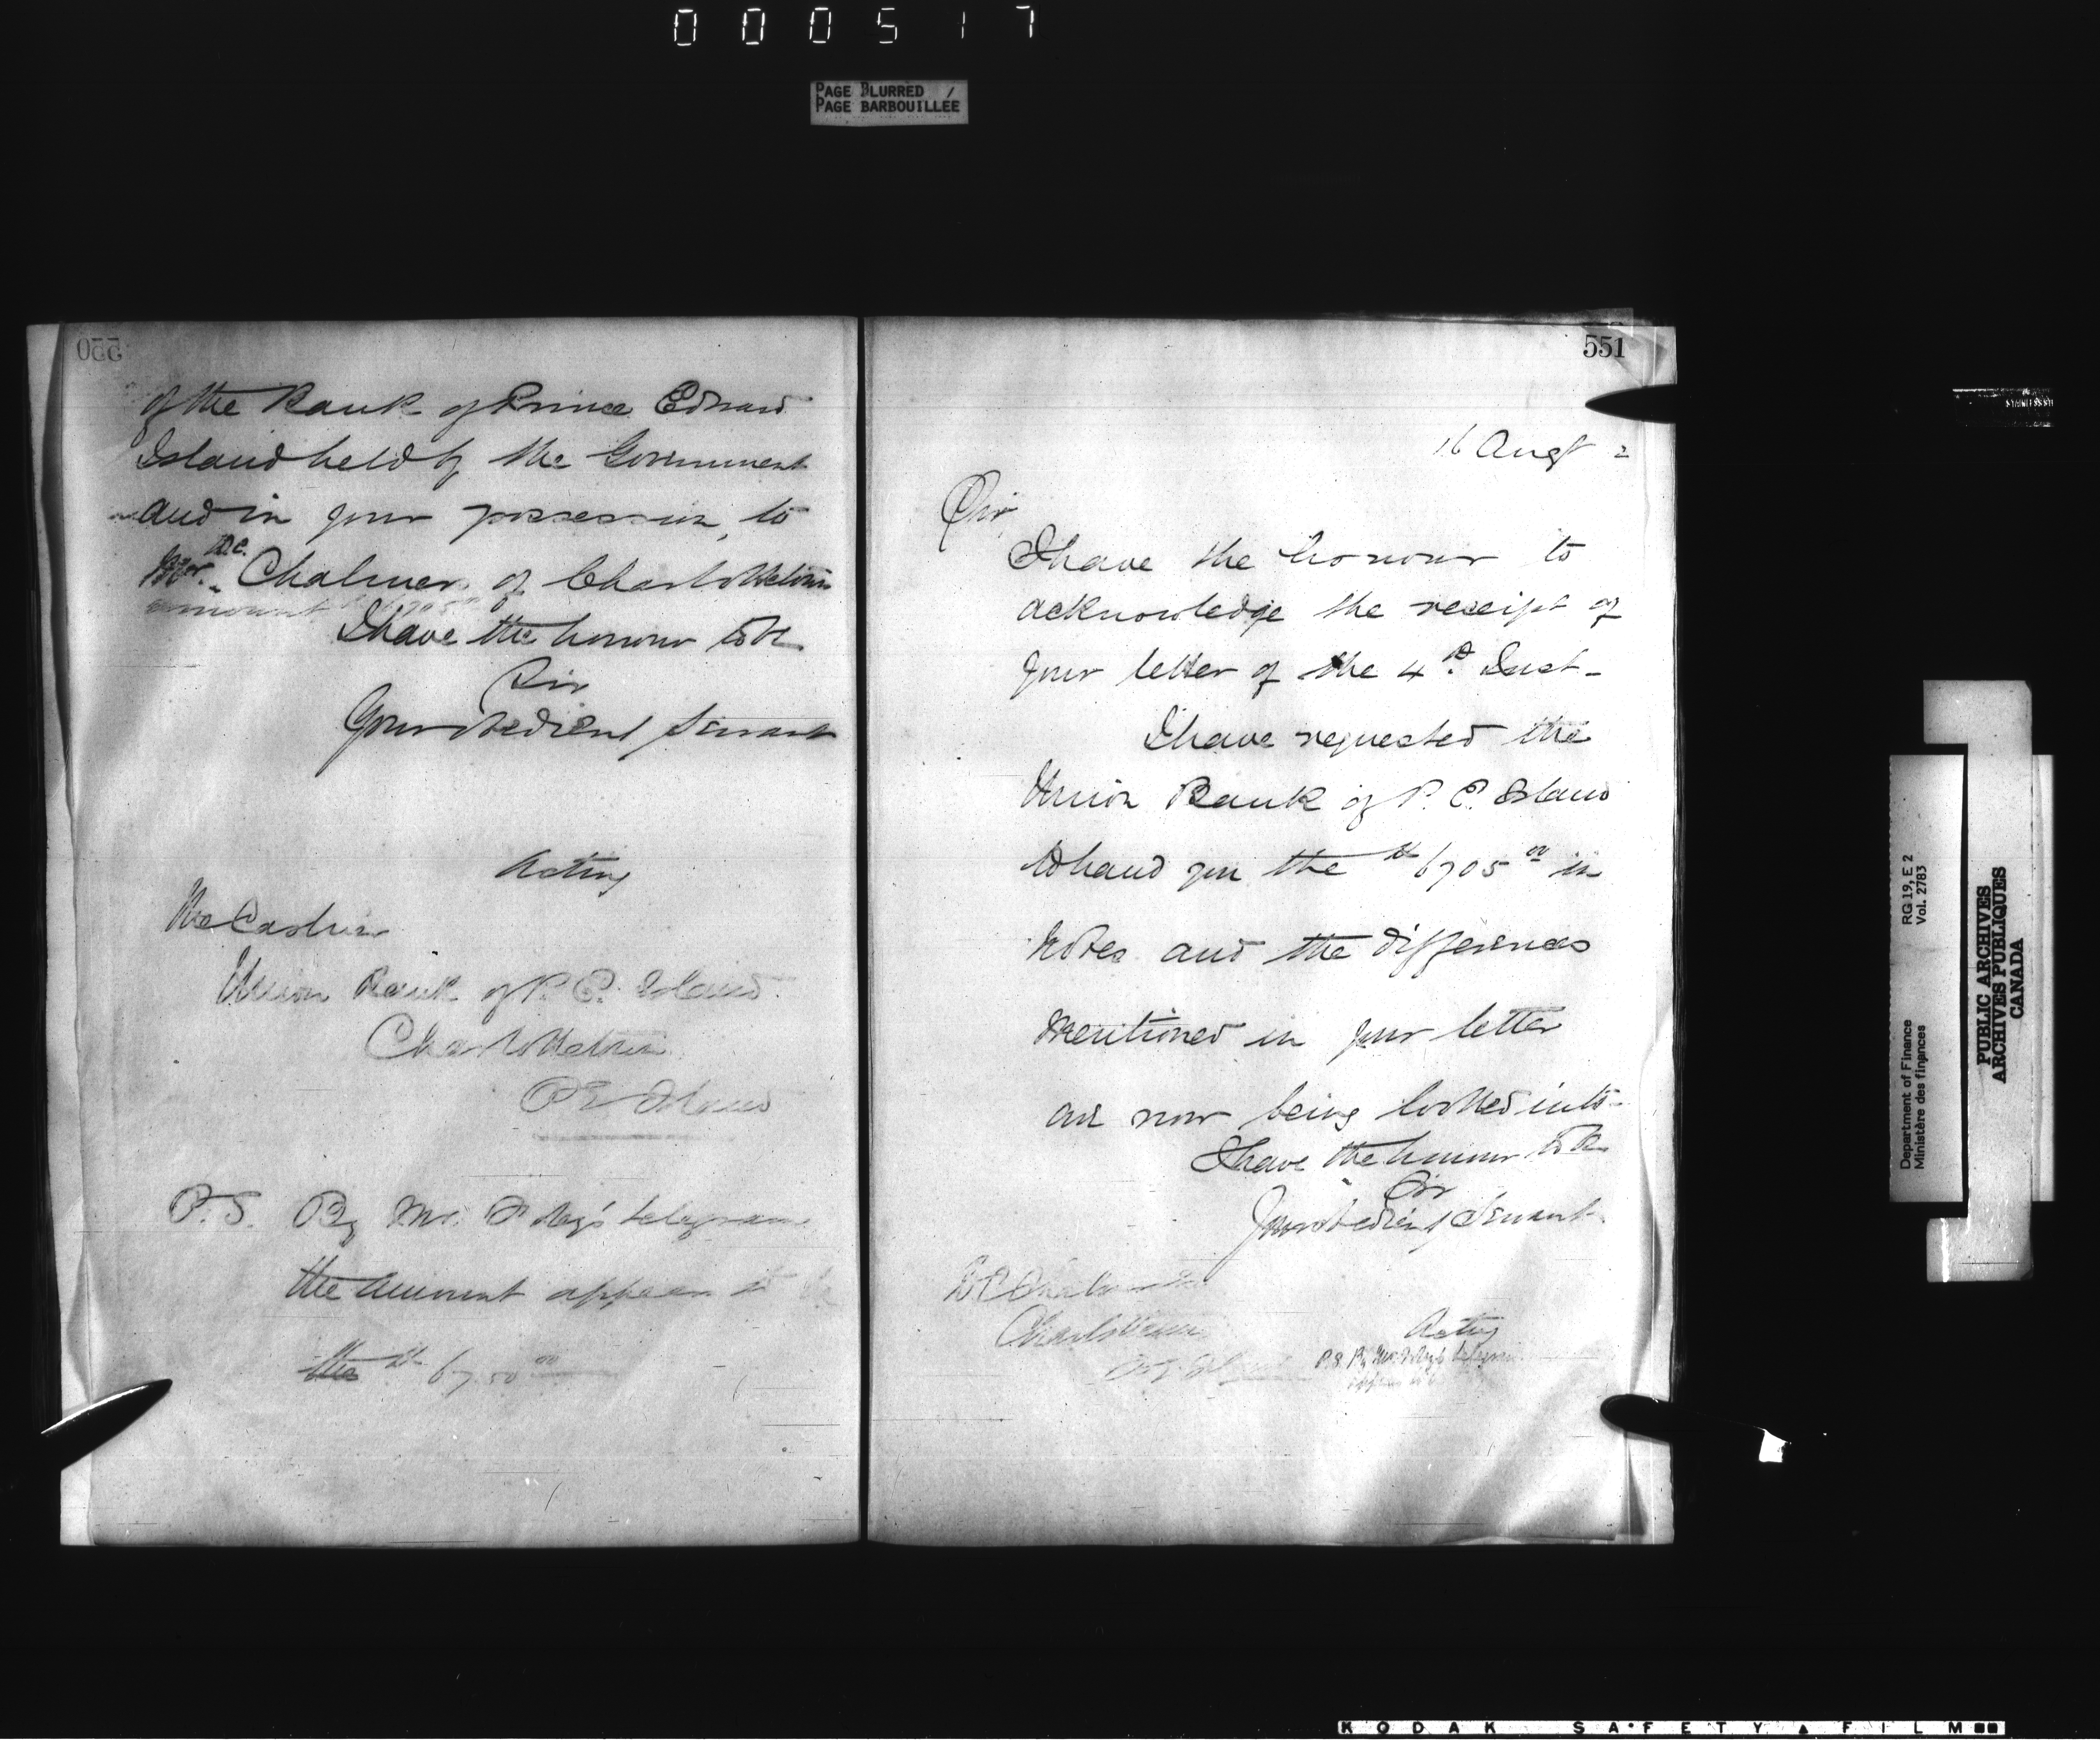 000517
PAGE BLURRED /
PAGE BARBOUILLÉE
550
of the Bank of Prince Edward
Island held by the Government
and in your possession, to
D.C.
Mr. Chalmers of Charlottetown
amount
I have the honour to be
Sir
Your obedient Servant
Acting
The Cashier
Union Bank of P. E. Island
Charlottetown
P E Island
P.S. By Mr. telegram
the amount appears to be
the $ 6750 00
551
16 Augt 2
Sir,
I have the honour to
acknowledge the receipt of
your letter of the 4th Inst-
I have requested the
Union Bank of P. E. Island
to hand you the $ 6705 00 in
notes and the differences
mentioned in your letter
are now being looked into-
I have the honour to be
Sir
Your obedient Servant
D C Chalmers
Charlottetown
Acting
P.S. By Mr. telegram
Department of Finance RG 19, E 2
Ministère des finances Vol. 2783
PUBLIC ARCHIVES
ARCHIVES PUBLIQUES
CANADA
KODAK SAFETY FILM